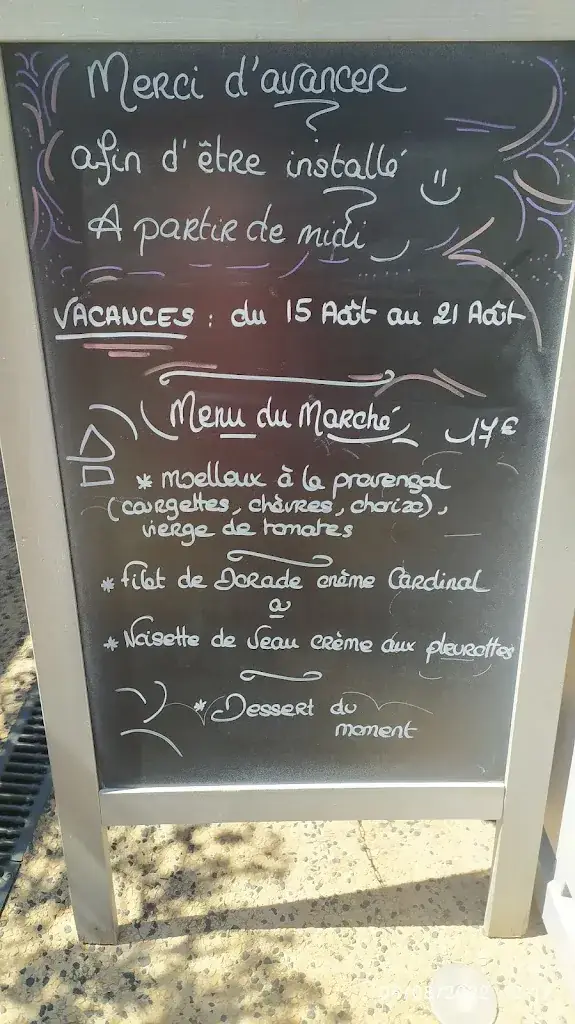 Merci d'avancer
afin d'être installé
A partir de midi
VACANCES : du 15 Août au 21 Août
Menu du Marché 17€
* moelleux à la provençal
(courgettes, chèvres, chorizo),
vierge de tomates
* filet de Dorade crème Cardinal
* Noisette de Veau crème aux pleurottes
* Dessert du
moment